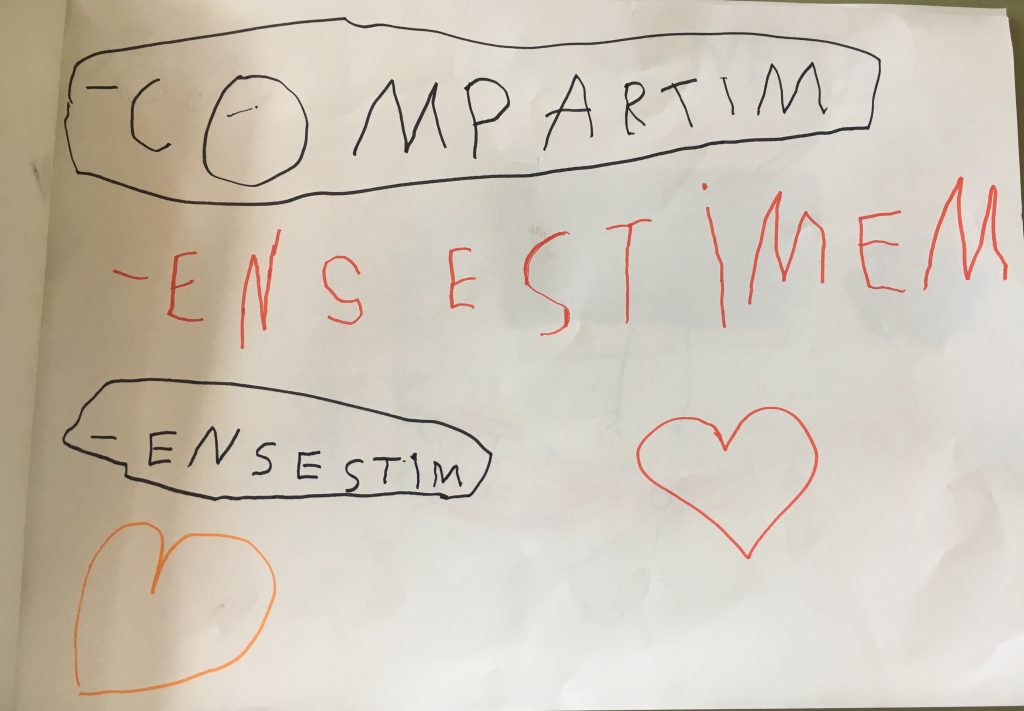 - COMPARTIM
- ENS ESTIMEM
- ENS ESTIM